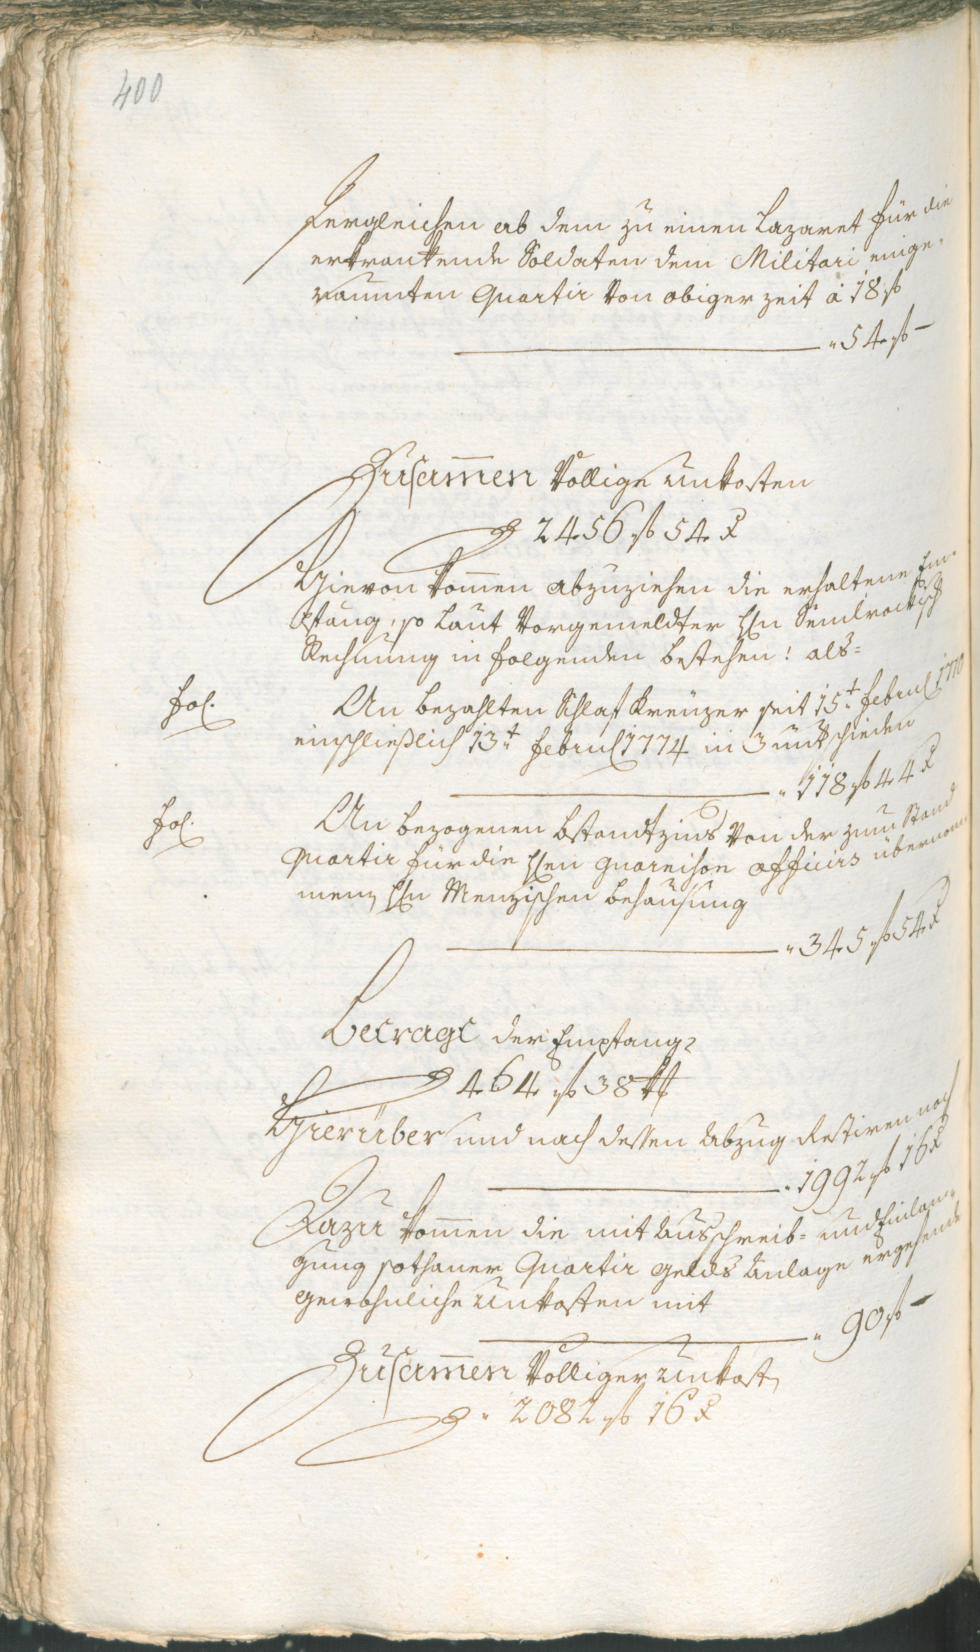 400
Dergleichen ab dem zu einen Lazaret für die
erkrankende Soldaten dem Militari einge-
raumten Quartir von obiger Zeit â 18 f
" 54 f –
Zusamen Völlige Unkosten
2456 f 54 x
Hievon komen abzuziehen die erhaltene Em-
pfäng, so Laut Vorgemeldter Hn
Rechnung in folgenden bestehen: als=
fol.
An bezahlten Schlaf Kreuzer seit 15t Februl 1770
einschließlich 13t Februl 1774 in 3 unterschieden
" 118 f 44 x
fol.
An bezogenen bstandtzins von der zum Stand
Quartir für die Hen guarnison officirs übernom
menen Hn Menzischen Behausung
" 345 f 54 x
Betragt der Empfang
464 f 38 x
Hierüber und nach dessen Abzug Restiren noch
" 1992 f 16 x
Dazu komen die mit Ausschreib- und Einlan-
gung sothaner Quartir Gelds Anlage ergehende
gewohnliche Unkosten mit
" 90 f –
Zusamen Völliger Unkost
" 2082 f 16 x